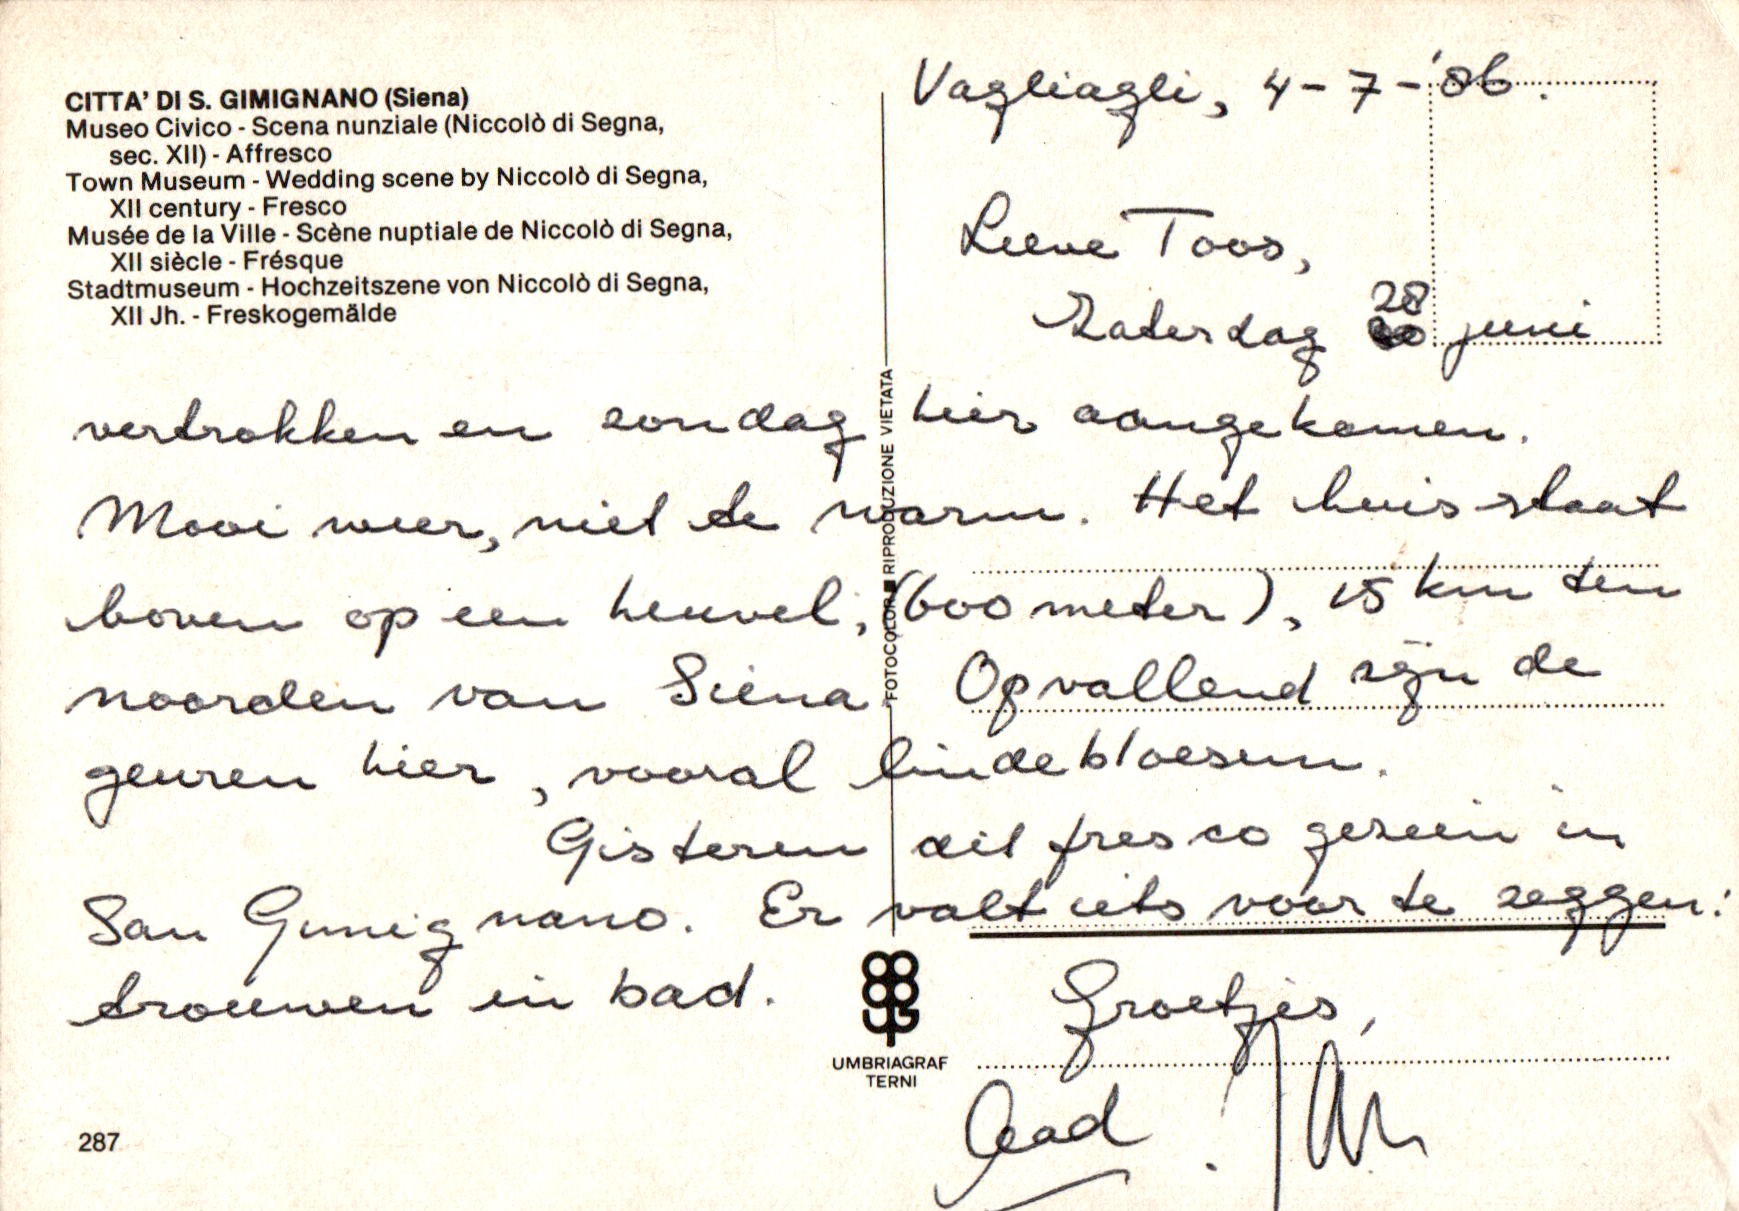 CITTA' DI S. GIMIGNANO (Siena)
Museo Civico - Scena nunziale (Niccolò di Segna,
sec. XII) - Affresco
Town Museum - Wedding scene by Niccolò di Segna,
XII century - Fresco
Musée de la Ville - Scène nuptiale de Niccolò di Segna,
XII siècle - Frésque
Stadtmuseum - Hochzeitszene von Niccolò di Segna,
XII Jh. - Freskogemälde
Vagliagli, 4-7-'86.
Lieve Toos,
Zaterdag 28 juni
vertrokken en zondag hier aangekomen.
Mooi weer, niet te warm. Het huis staat
boven op een heuvel, (600 meter), 15 km ten
noorden van Siena. Opvallend zijn de
geuren hier, vooral lindebloesem.
Gisteren dit fresco gezien in
San Gimignano. Er valt iets voor te zeggen:
trouwen in bad.
Groetjes,
Aad
FOTOCOLOR ■ RIPRODUZIONE VIETATA
UMBRIAGRAF
TERNI
287